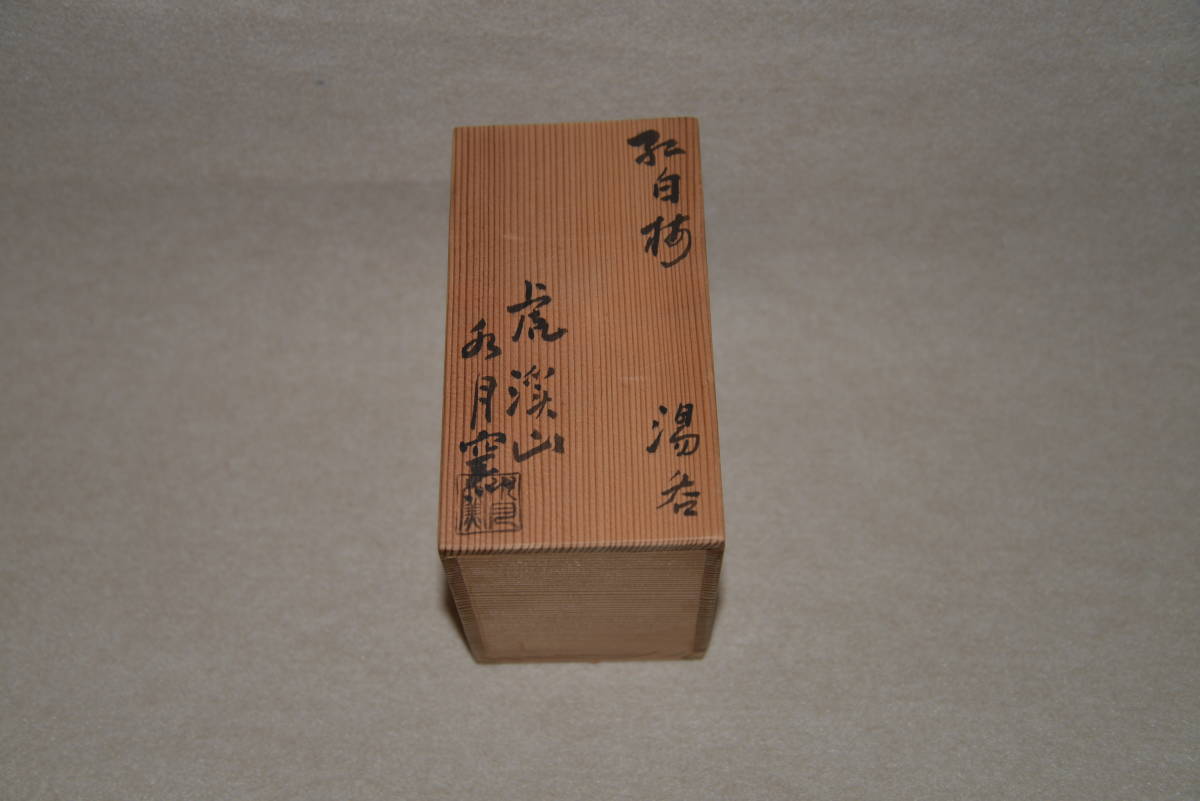 紅白梅 湯呑
虎渓山
水月窯